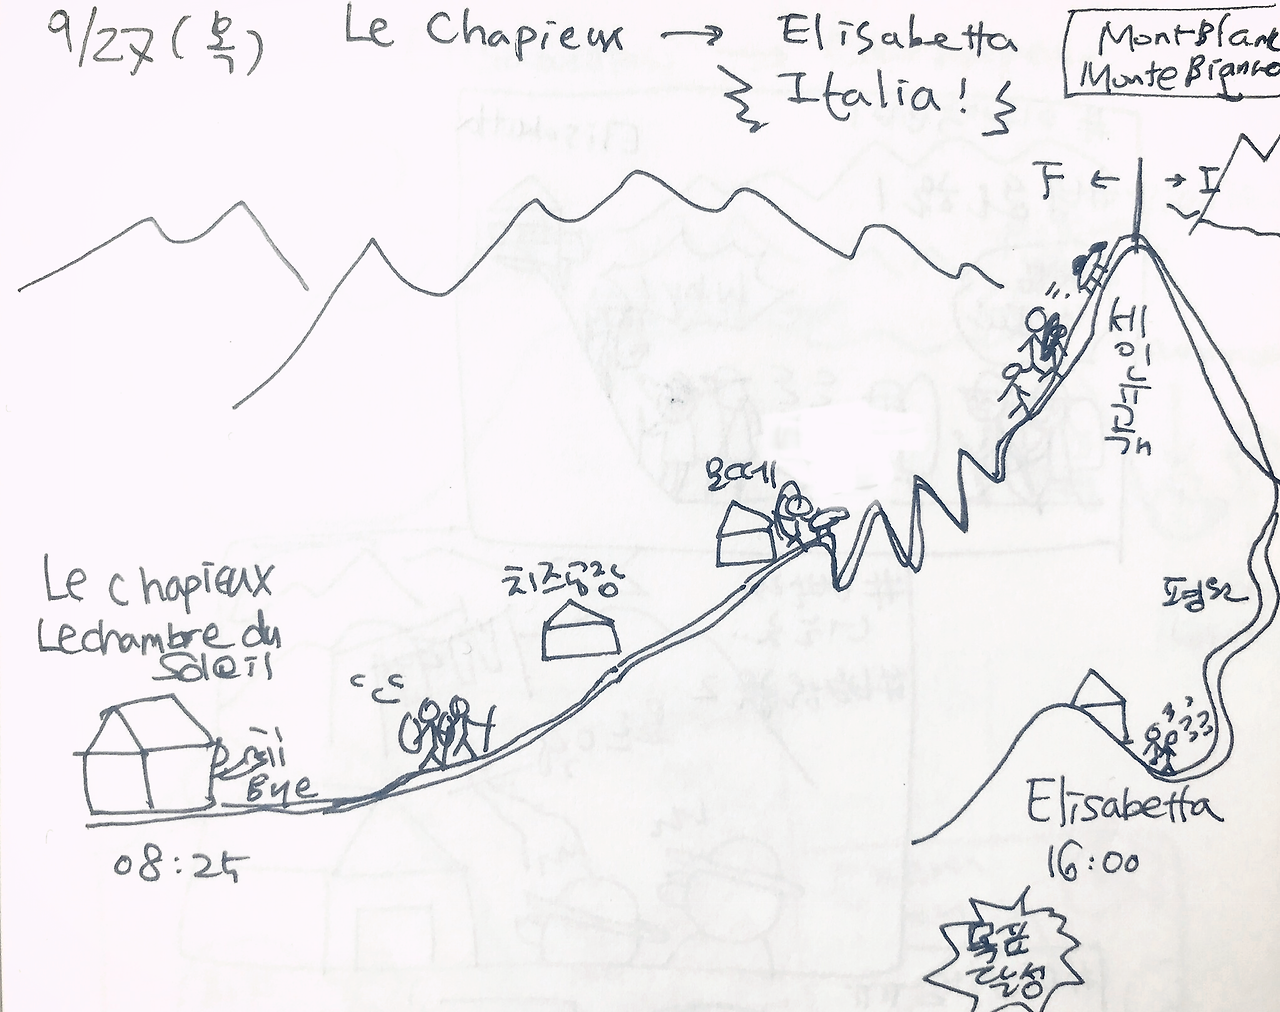 9/27(목)
Le Chapieux → Elisabetta
Italia!
MontBlanc
Monte Bianco
F ← → I
세
이
뉴
고
개
모떼
치즈공장
Le chapieux
Lechambre du
Soleil
Bye
08:25
평화
Elisabetta
16:00
목표
달성